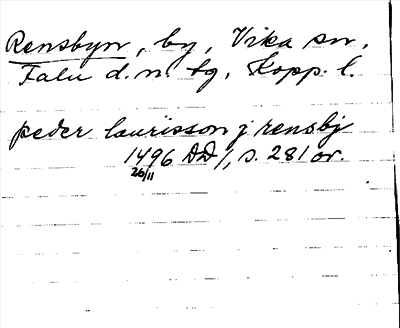 Rensbyn, by, Vika sn.
Falu d.n. tg. Kopp. l.
peder laurisson j rensbj
1496 DD 1, s. 281 or.
26/11